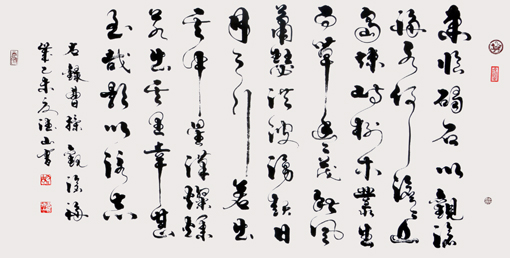 東臨碣石以觀滄
海水何澹澹山
島竦峙樹木叢生
百草豐茂秋風
蕭瑟洪波湧起日
月之行若出
其中星漢燦爛
若出其里幸甚
至哉歌以詠志
右錄曹操觀滄海